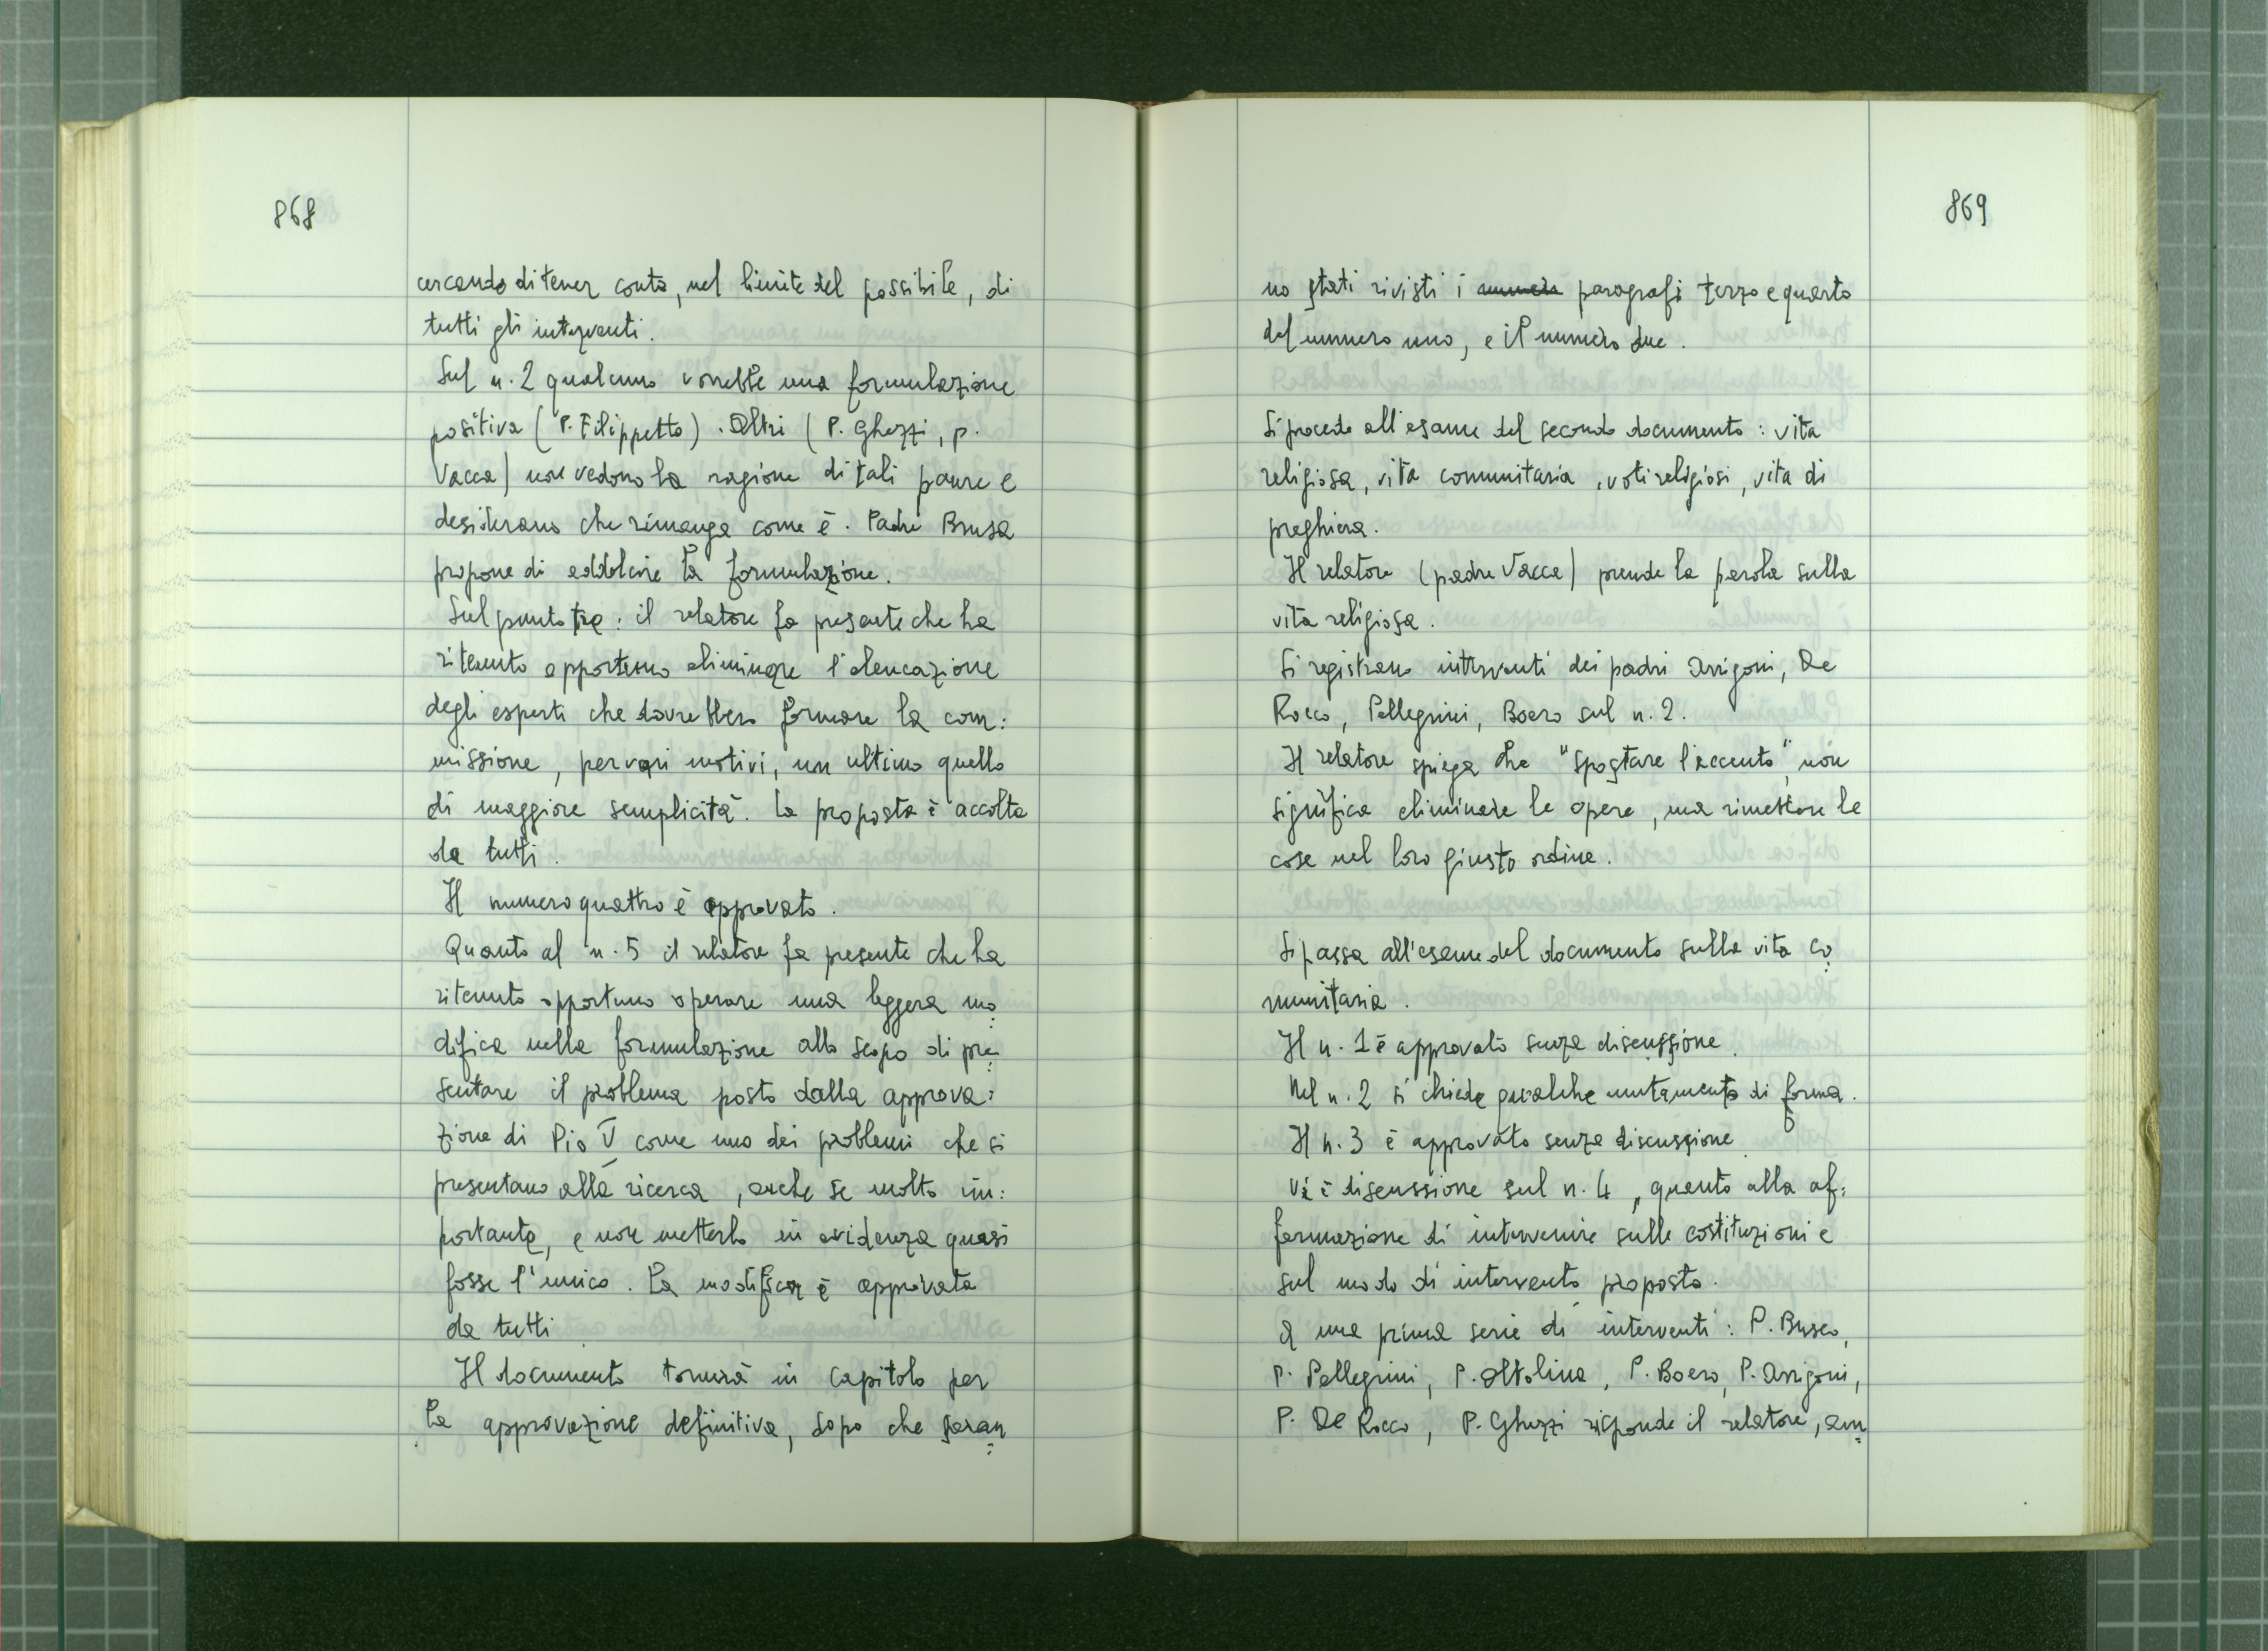 868
cercando di tener conto, nel limite del possibile, di
tutti gli interventi.
Sul n. 2 qualcuno vorrebbe una formulazione
positiva (P. Filippetto). Altri (P. Ghezzi, p.
Vacca) non vedono la ragione di tali paure e
desiderano che rimanga come è. Padre Brusa
propone di addolcire la formulazione.
Sul punto tre: il relatore fa presente che ha
ritenuto opportuno eliminare l'elencazione
degli esperti che dovrebbero formare la com:
missione, per vari motivi, un ultimo quello
di maggiore semplicità. La proposta è accolta
da tutti.
Il numero quattro è approvato.
Quanto al n. 5 il relatore fa presente che ha
ritenuto opportuno operare una leggera mo:
difica nella formulazione allo scopo di pre:
sentare il problema posto dalla approva:
zione di Pio V come uno dei problemi che si
presentano alla ricerca, anche se molto im:
portante, e non metterlo in evidenza quasi
fosse l'unico. La modifica è approvata
da tutti
Il documento tornerà in capitolo per
la approvazione definitiva, dopo che saran:
869
no stati rivisti i paragrafi terzo e quarto
del numero uno, e il numero due.
Si procede all'esame del secondo documento: vita
religiosa, vita comunitaria, voti religiosi, vita di
preghiera.
Il relatore (padre Vacca) prende la parola sulla
vita religiosa.
Si registrano interventi dei padri Arrigoni, De
Rocco, Pellegrini, Boero sul n. 2.
Il relatore spiega che "spostare l'accento", non
significa eliminare le opere, ma rimettere le
cose nel loro giusto ordine.
Si passa all'esame del documento sulla vita co:
munitaria.
Il n. 1 è approvato senza discussione.
Nel n. 2 si chiede qualche mutamento di forma.
Il n. 3 è approvato senza discussione.
Vi è discussione sul n. 4, quanto alla af:
fermazione di intervenire sulle costituzioni e
sul modo di intervento proposto.
A una prima serie di interventi: P. Brusa,
P. Pellegrini, P. Oltolina, P. Boero, P. Arrigoni,
P. De Rocco, P. Ghezzi risponde il relatore, am: